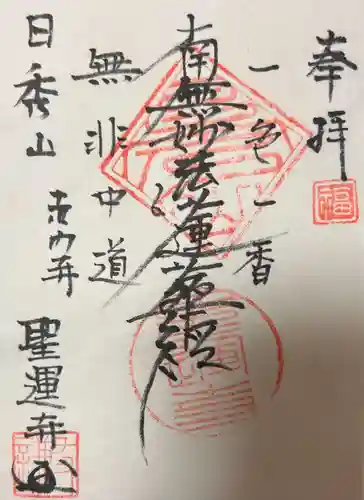 奉拝
一色一香
南無妙法蓮華経
無非中道
日秀山
聖運寺